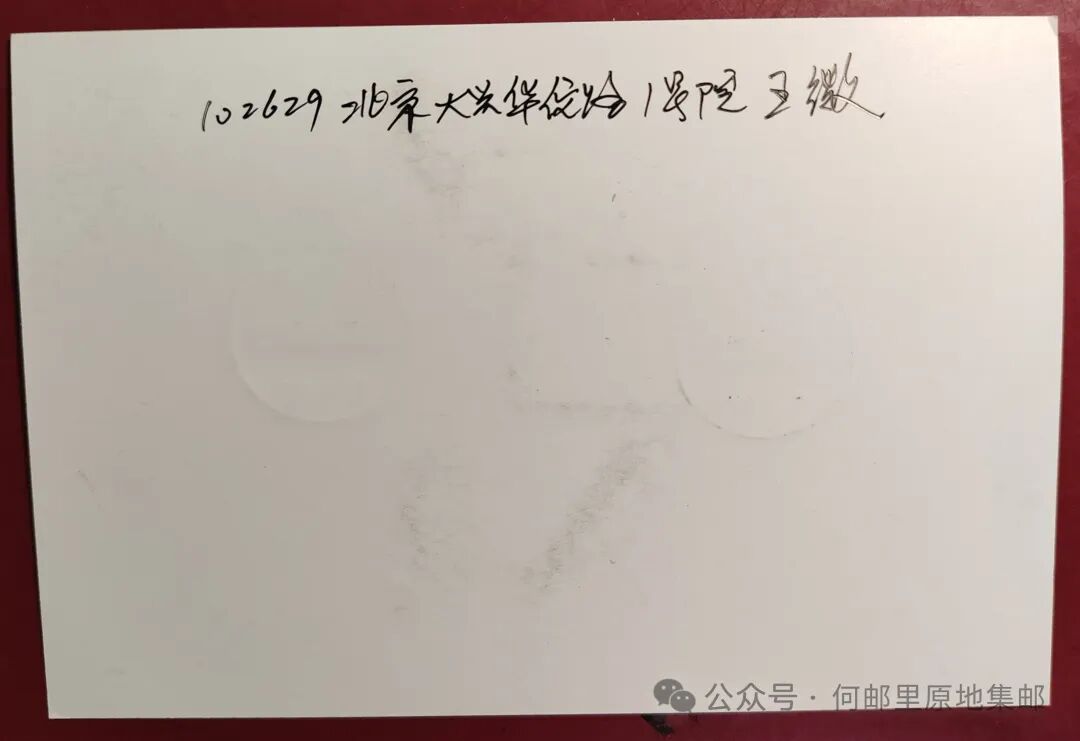 102629 北京大兴华佗路1号院 王微
公众号·何邮里原地集邮